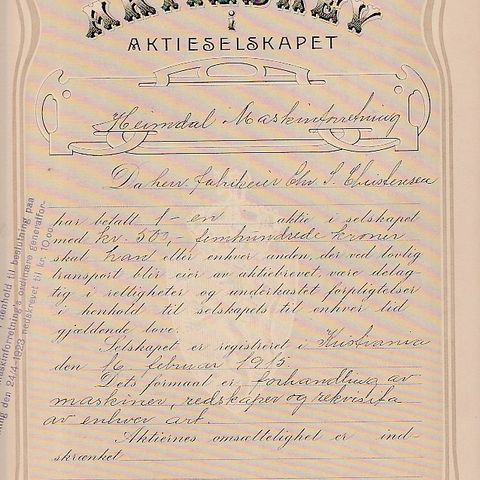 AKTIEBREV
i
AKTIESELSKAPET
Heimdal Maskinforretning
Da herr fabrikeier Chr. S. Christensen
har betalt 1 - en aktie i selskapet
med kr. 500,- femhundrede kroner
skal han eller enhver anden, der ved lovlig
transport blir eier av aktiebrevet, være delag-
tig i rettigheter og underkastet forpligtelser
i henhold til selskapets til enhver tid
gjældende love.
Selskapet er registreret i Kristiania
den 16. februar 1915.
Dets formaal er forhandling av
maskiner, redskaper og rekvisita
av enhver art.
Aktiernes omsættelighet er ind-
skrænket
henhold til beslutning paa
maskinforretning's ordinære generalfor-
ning den 24/4-1923 nedskrevet til kr. 10.00